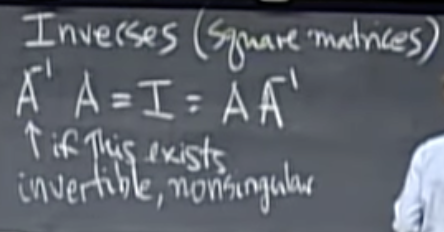 Inverses (square matrices)
A⁻¹ A = I = A A⁻¹
↑ if this exists
invertible, nonsingular